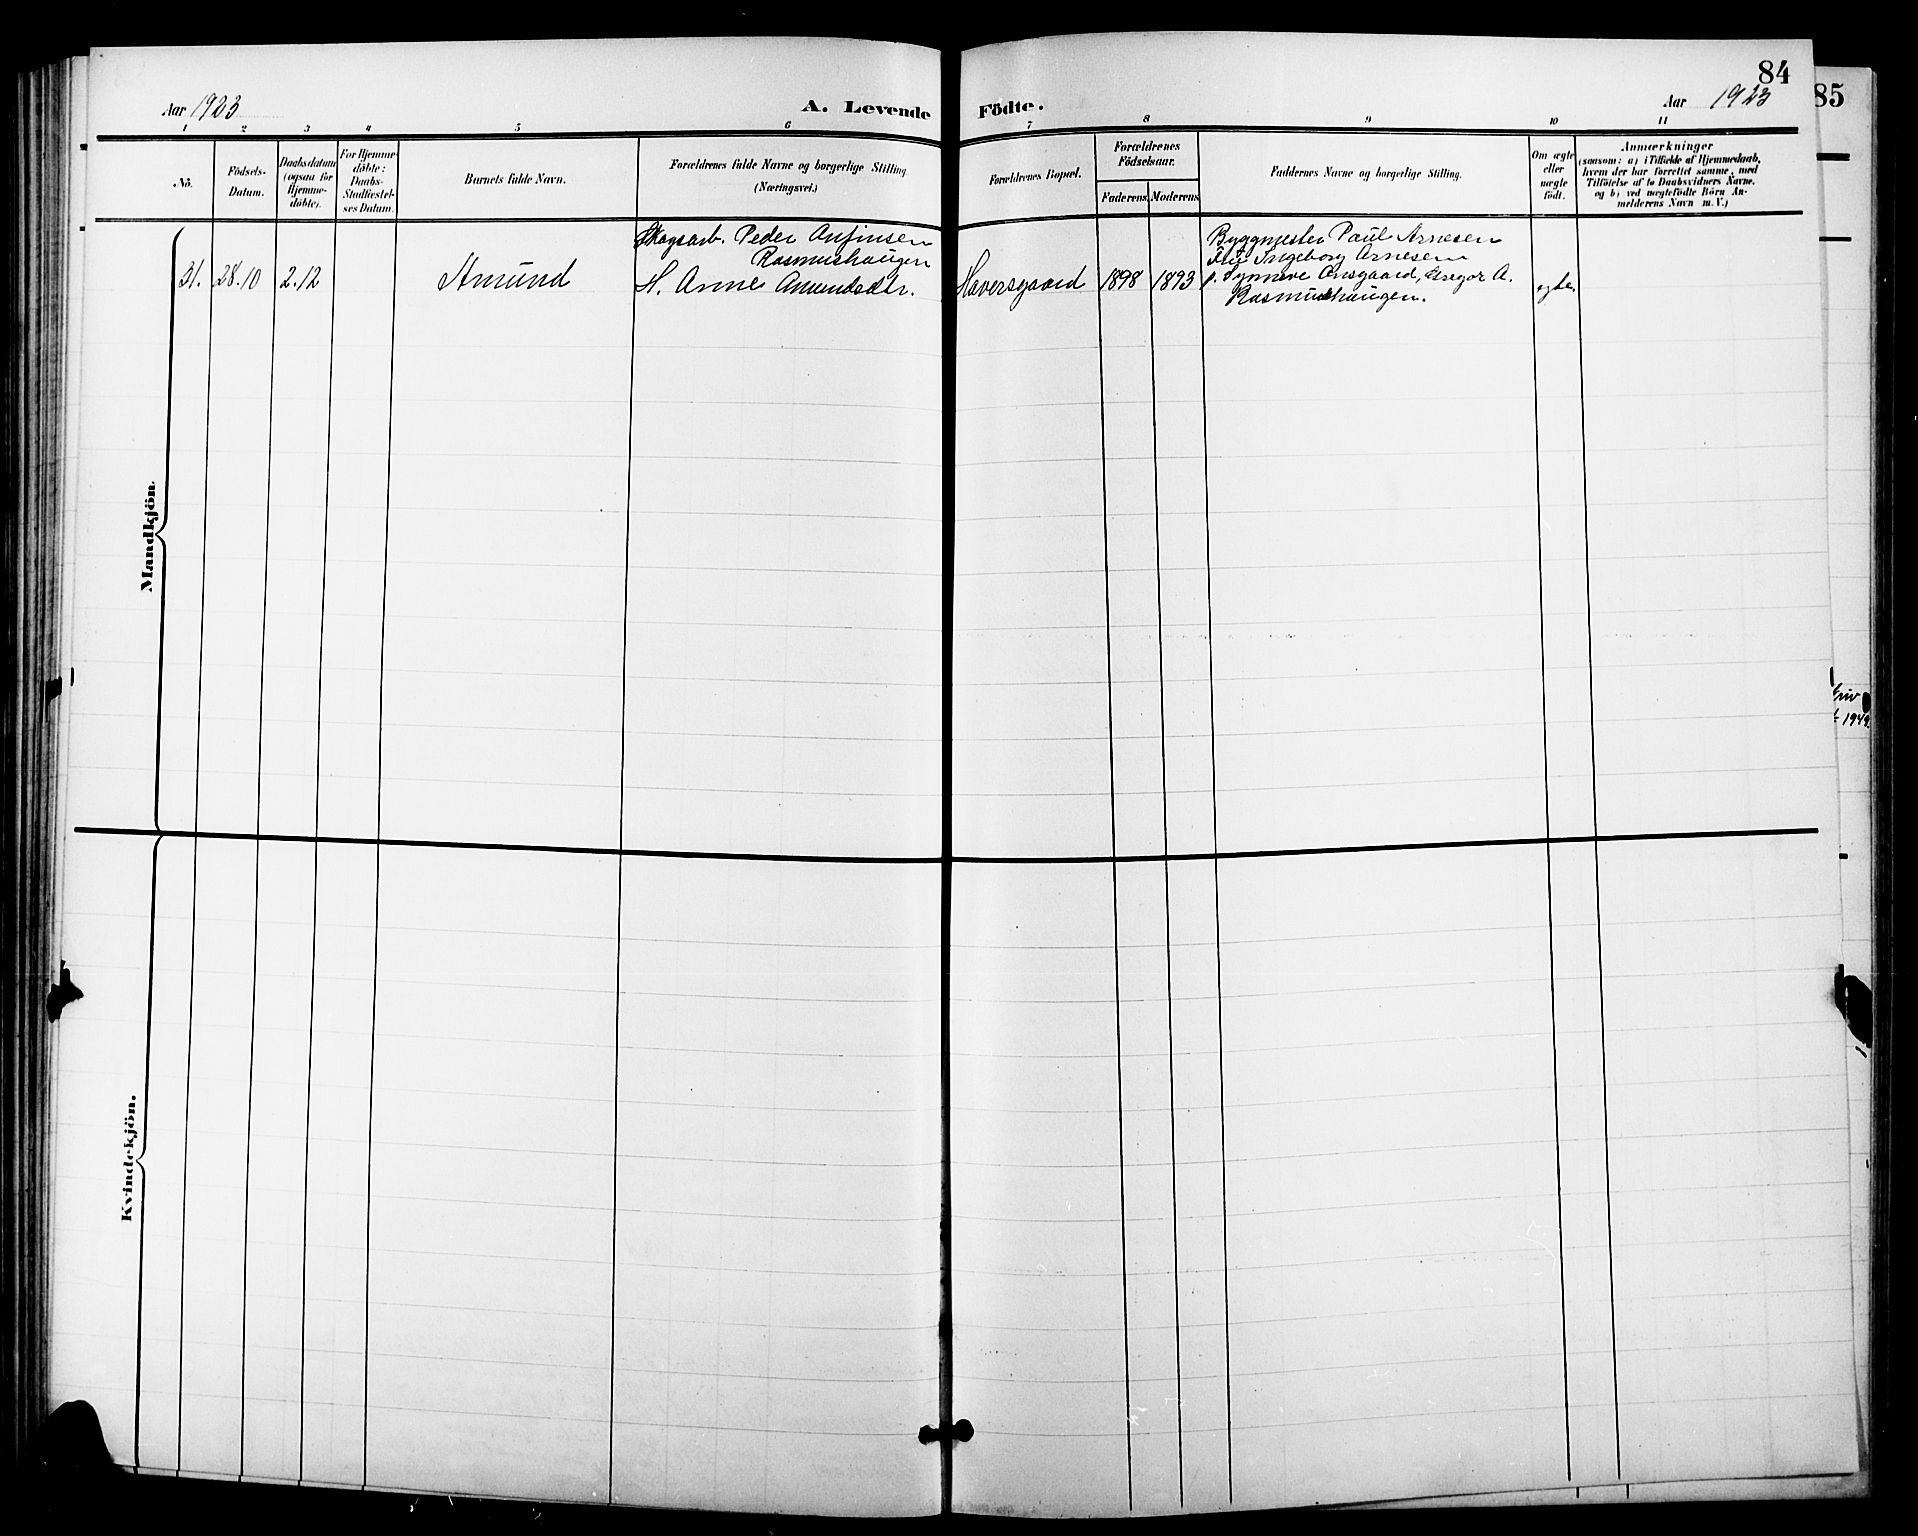 84
85
Aar 1923
A. Levende Födte.
Aar 1923
1 2 3 4 5 6 7 8 9 10 11
No.
Födsels-Datum.
Daabsdatum (ogsaa for Hjemme-döbte).
For Hjemme-döbte: Daabs-Stadfæstel-ses Datum.
Barnets fulde Navn.
Forældrenes fulde Navne og borgerlige Stilling (Næringsvei.)
Forældrenes Bopæl.
Forældrenes Födselsaar.
Faderens. Moderens.
Faddernes Navne og borgerlige Stilling.
Om ægte eller uægte födt.
Anmærkninger
(saasom: a) i Tilfælde af Hjemmedaab, hvem der har forrettet samme, med Tilföielse af to Daabsvidners Navne. og b) ved uægtefödte Börn An-melderens Navn m. V.)
Mandkjön.
31. 28.10 2.12 Amund
Skogsarb. Peder Anfinsen
Rasmushaugen
H. Anne Amundsdtr.
Haversgaard 1898 1893
Byggmester Paul Arnesen
Fru Ingeborg Arnesen
p. Synneve Onsgaard, Gregor A.
Rasmushaugen.
egte.
Kvindekjön.
1949